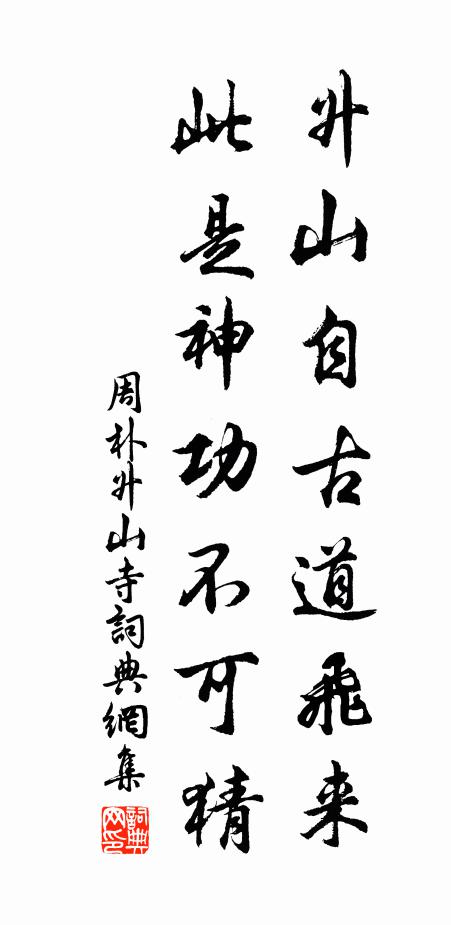 升山自古道飛来
此是神功不可猜
周朴升山寺詞典網集
詞典網印